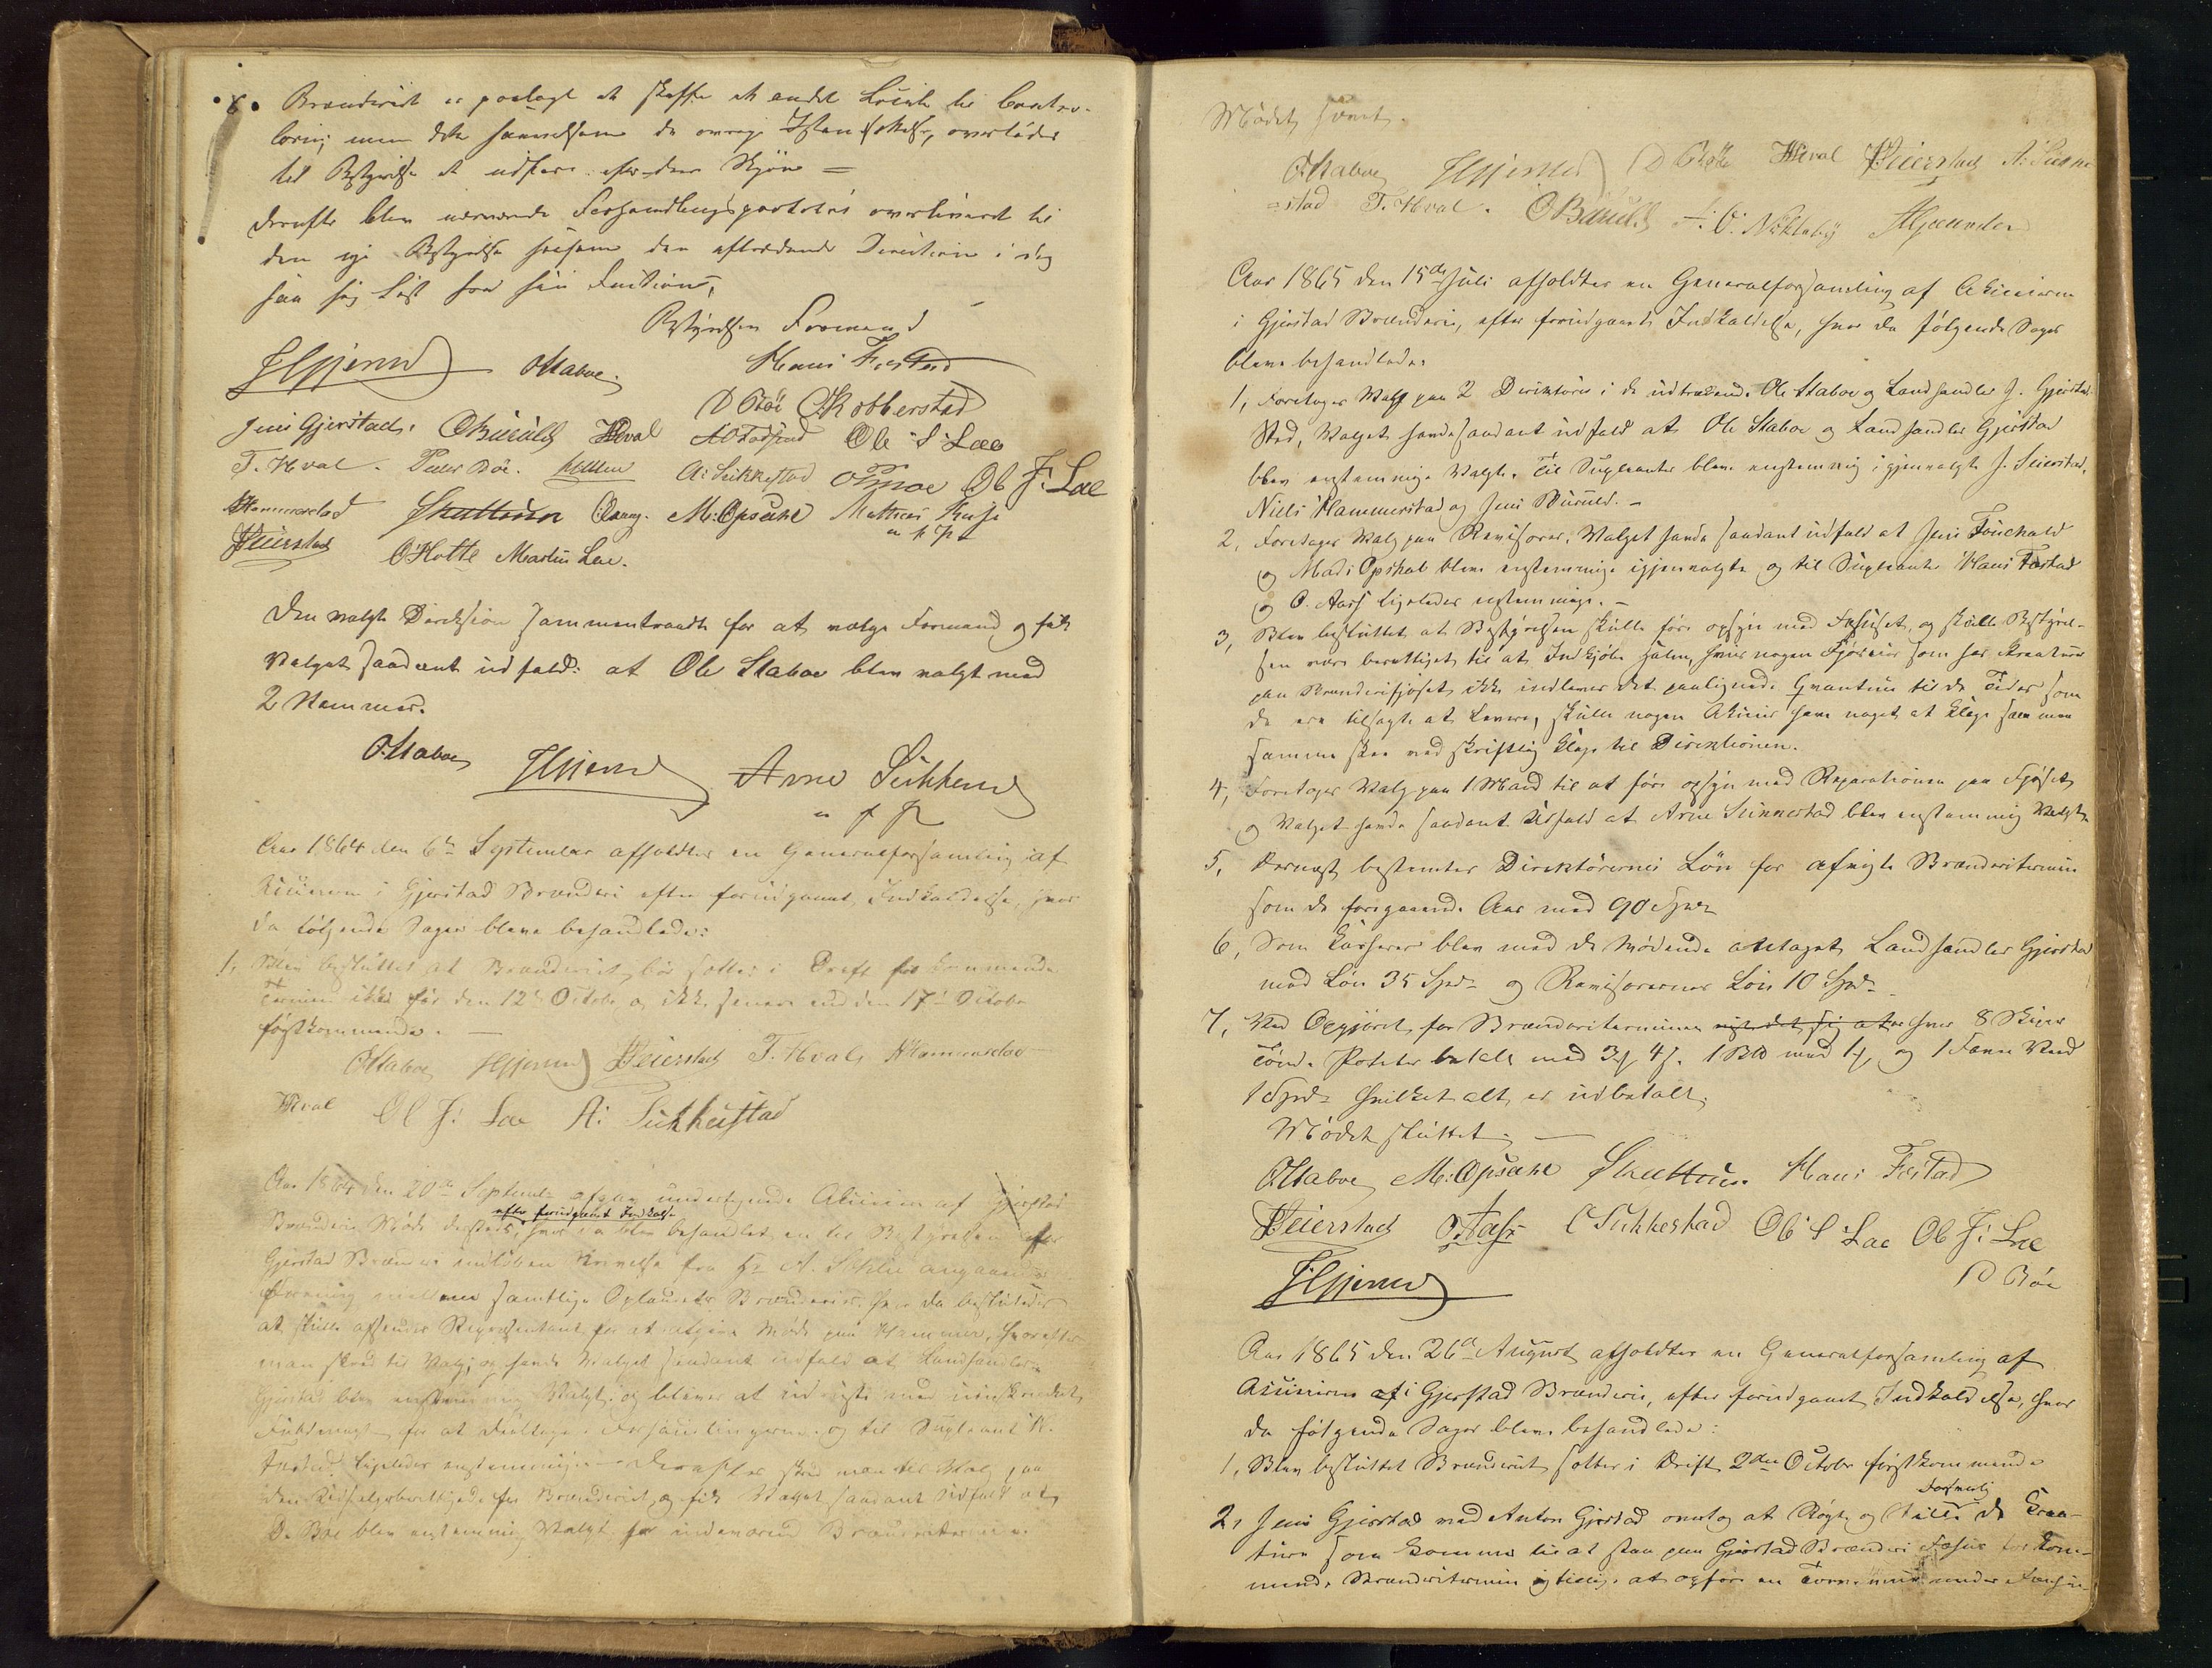 8. Brænderiet er paalagt at skaffe et andet Locale til Contro-
lering men dette sammelsom de øvrige Istandsættelser, overlades
til Bestyrelsen at udføre efter deres Skjøn =
Derefter blev nærværende Forhandlingsprotokol overleveret til
den nye Bestyrelse saasom den aftrædende Direction i dag
saa sig løst fra sin Function,
Bestyrelsens Formand
JGjerstad OStaboe Hans Festad
D Böe OKobberstad
Jens Gjerstad. OBuruld Hval Ole S. Lae
T. Hval. Peder Böe. A: Sukkestad Ole J: Lae
NHammerstad Skuttrun M: Opsahl Mathias
m p P
PSeierstad OHotte Martin Lae.
Den valgte Direksion sammentraadte for at vælge Formand og fik
Valget saadant udfald: at Ole Staboe blev valgt med
2 Stemmer.
OStaboe JGjerstad Arne Sukkestad
m p P
Aar 1864 den 6te September afholdtes en Generalforsamling af
Actionærer i Gjerstad Brænderi efter forudgaaet Indkaldelse, hvor
da følgende Sager bleve behandlede:
1, Blev besluttet at Brænderiet bør sættes i Drift for kommende
Termin ikke før den 12te October og ikke senere end den 17de October
førstkommende. —
OStaboe JGjerstad PSeierstad T. Hval NHammerstad
Hval Ole J: Lae A: Sukkestad
Aar 1864 den 20de September undertegnede Actionærer af Gjerstad
efter forudgaaet Indkaldelse
Brænderi Møde dersteds, hvor da blev behandlet en til Bestyrelsen for
Gjerstad Brænderi indløben Skrivelse fra Hr A. angaaende
Forening mellem samtlige Oplandets Brænderier. Hvor da besluttedes
at skulle afsendes Repræsentant for at afgive Møde paa Hammer, hvorefter
man skred til Valg; og havde Valget saadant udfald at Landhandler
Gjerstad blev enstemmig Valgt. og bleve at udruste med uindskrænket
Fuldmagt for at deeltage i Forhandlingerne og til Supleant H.
Festad ligeledes enstemmig. — Derefter skred man til Valg paa
den Udsalgsberettigede for Brænderiet, og fik Valget saadant Udfald at
D. Böe blev enstemmig Valgt for indeværende Brænderitermin.
Mödet hævet.
OStaboe JGjerstad D Böe Hval PSeierstad A: Sukke
=stad T. Hval. OBuruld A: O: Nökleby
Aar 1865 den 15de Juli afholdtes en Generalforsamling af Actionærer
i Gjerstad Brænderi, efter forudgaaet Indkaldelse, hvor da følgende Sager
bleve behandlede.
1, Foretages Valg paa 2 Direktörer i de udtrædende Ole Staboe og Landhandler J. Gjerstad
Sted, Valget havde saadant udfald at Ole Staboe og Landhandler Gjerstad
blev enstemmige Valgte. Til Supleanter bleve enstemmig igjenvalgte P. Seierstad,
Niels Hammerstad og Jens Buruld. —
2, Foretages Valg paa Revisorer, Valget havde saadant udfald at Jens Fouchald
og Mads Opshal bleve enstemmige igjenvalgte og til Supleanter Hans Festad
og O. Aass ligeledes enstemmige. —
3, Blev besluttet at Bestyrelsen skulle føre opsyn med Fæhuset, og skulle Bestyrel-
sen være berettiget til at Indkjøbe Halm, hvis nogen Fjøseier som har Kreaturer
paa Brænderifjøset ikke indleverer det paalignede Qvantum til de Tider som
de ere tilsagte at Levere, skulle nogen Actioner have noget at klage saa maa
samme skee ved skriftlig Klage til Direktionen.
4, Foretages Valg paa 1 Mand til at føre opsyn med Reparationen paa Fjøset,
og Valget havde saadant Udfald at Arne Sukkestad blev enstemmig Valgt.
5, Dernæst bestemtes Direktörernes Løn for afvigte Brænderitermin
som de foregaaende Aar med 90 Spd.
6, Som Kasserer blev med de Mødende antaget Landhandler Gjerstad
med Løn 35 Spd. og Revisorernes Løn 10 Spd.
7, Ved Opgjøret for Brænderiterminen vister det sig at hver 8 Skjeps
Tønde Poteter betalt med 3 4 1 BW med 1 og 1 Favn Ved
1 Spd. hvilket alt er udbetalt.
Mødet sluttet. —
OStaboe M: Opsahl Skuttrun. Hans Festad
PSeierstad OAass CSukkestad Ole S Lae Ole J: Lae
JGjerstad D Böe
Aar 1865 den 26de August afholdtes en Generalforsamling af
Actionærer af i Gjerstad Brænderi, efter forudgaaet Indkaldelse, hvor
da følgende Sager bleve behandlede:
1, Blev besluttet Brænderiet sættes i Drift 2den October førstkommende
forsvarlig
2, Jens Gjerstad med Anton Gjerstad overtog at Røgte og Stelle de Krea-
ture som kommer til at staa paa Gjerstad Brænderi Fæhus for kom-
mende Brænderitermin og tillige at opføre en under